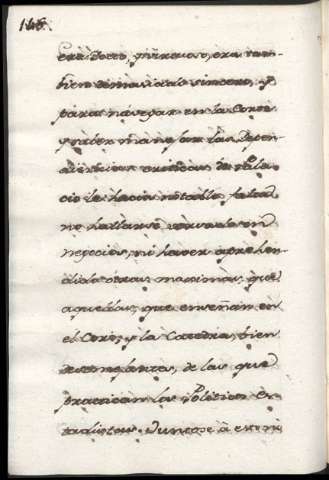 146.
era docto, y virtuoso, era tam-
bien demaciado sincero, y
para navegar en la Corte
y saber manejar las Depen-
dencias de Pala-
cio le hacia notable falta
no hallarse versado en
negocios, ni haver aprehen-
dido otras maximas, que
aquellas, que enseñan en
el Coro, y la Catedra, bien
desemejantes, de las que
practican las Politicos Es-
tadistas. Juntose à esto ni